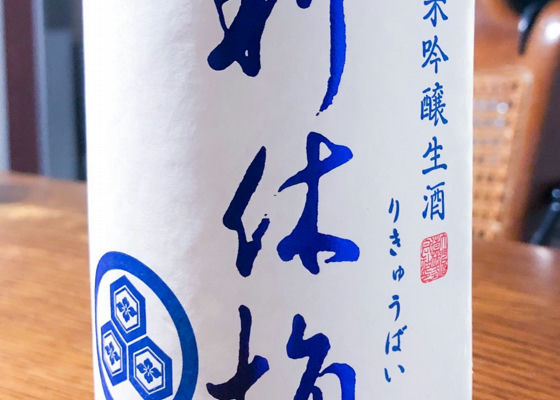 米吟醸生酒
りきゅうばい
利休梅